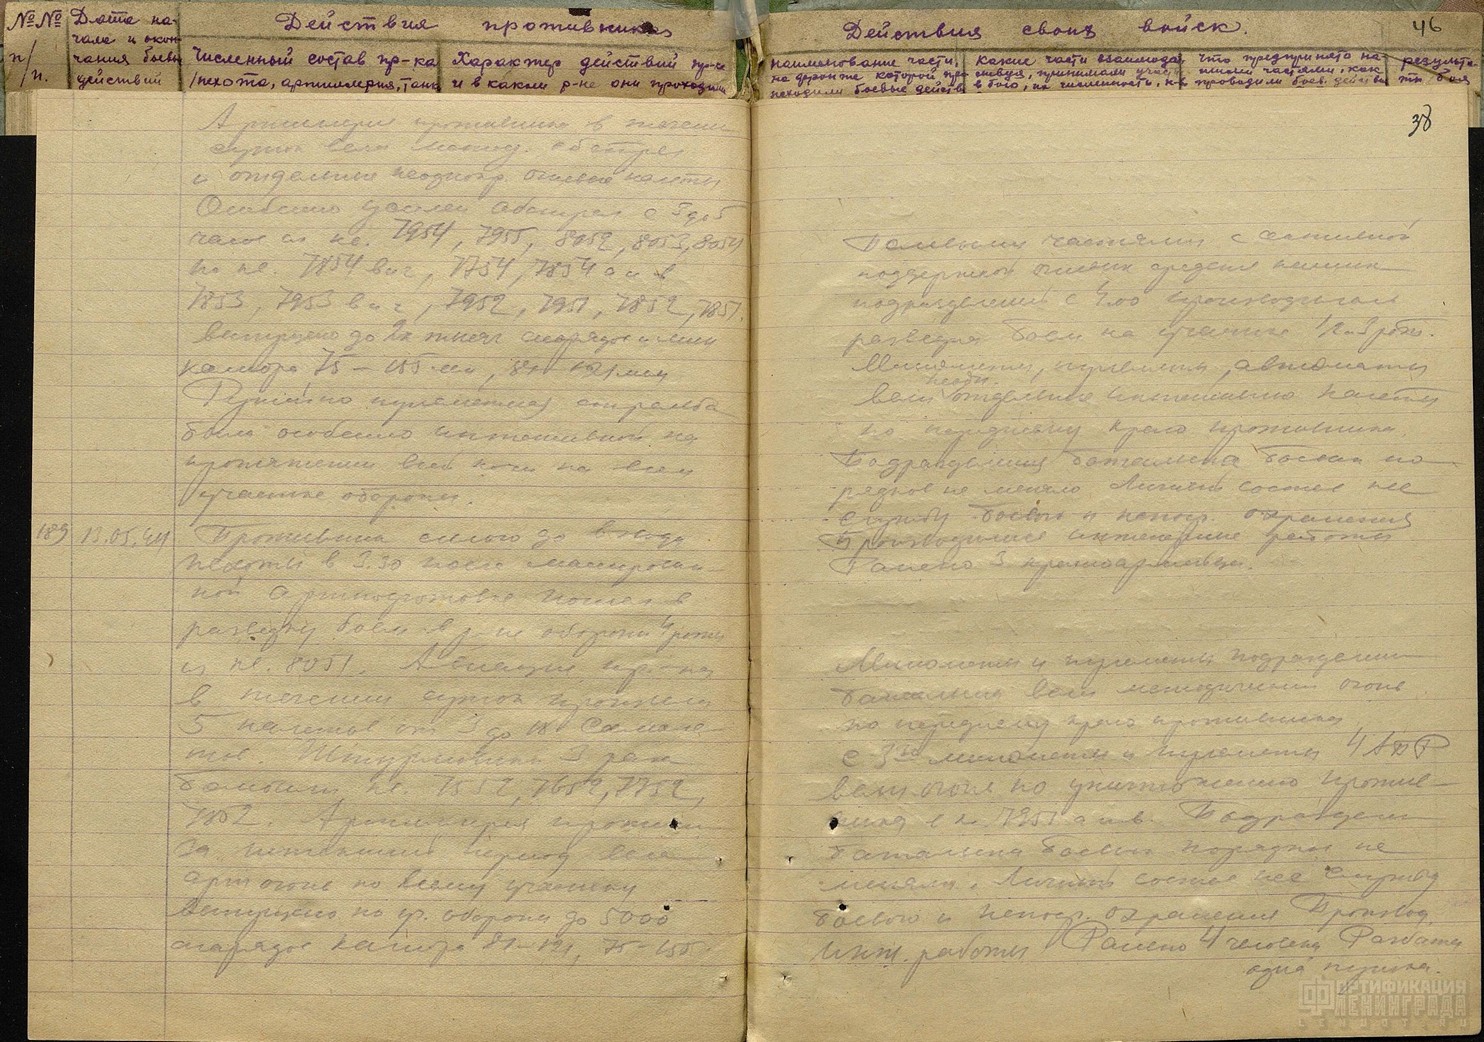 №№ п/п.
Дата начала и окончания боевых действий
Действия противника
Численный состав пр-ка /пехота, артиллерия, танки
Характер действий пр-ка и в каком р-не они проходили
Действия своих войск.
46
наименование части, на фронте которой происходили боевые действ
Какие части взаимодействуя, принимали участ. в бою, их численность,
Что предпринято нашими частями, как проводили боев. действия
результаты боя
38
Артиллерия противника в течении
суток вела метод. обстрел
и отдельные огневые налеты
Особенно усилен обстрел с 3 до 5
часов из кв. 7954, 7955, 8052, 8053, 8054
по кв. 7854 в и г, 7754, 7854 а и в
7853, 7953 в и г, 7952, 7951, 7852, 7851.
Выпущено до 2х тысяч снарядов и мин
калибра 75 – 155 мм, 81–121 мм
Ружейно пулеметная стрельба
была особенно интенсивной на
протяжении всей ночи на всем
участке обороны.
189
13.05.44
Противник силою до взвода
пехоты в 3.30 после массирован-
ной артподготовки пошел в
разведку боем в р-не обороны 4 роты
из кв. 8051. Авиация пр-ка
в течении суток произвела
5 налетов от 3 до 18 самоле-
тов. Штурмовики 3 раза
бомбили кв. 7552, 7652, 7752,
7852. Артиллерия противн.
за истекший период вела
арт огонь по всему участку
Выпущено по р. обороны до 5000
снарядов калибра 81–121, 75–155
поддержкой огневых средств наших
подразделений с 4.00 производили
разведку боем на участке
Минометы, пулеметы, автоматы
вели отдельные интенсивно налеты
по переднему краю противника.
Подразделения батальона боевой по-
рядок не меняло Личный состав нес
службу боевого и непоср. охранения
Производились инженерные работы
Ранено 3 красноармейца.
Минометы и пулеметы подразделений
батальона вели методический огонь
по переднему краю противника
с 3 30 минометы и пулеметы 4 АПР
вели огонь по уничтожению против-
ника в кв. 7951 а и в. Подразделен.
батальона боевой порядок не
меняли. Личный состав нес службу
боевого и непоср. охранения Производ.
инж. работы Ранено 4 человека Разбита
одна пушка.
ФОРТИФИКАЦИЯ
ЛЕНИНГРАДА